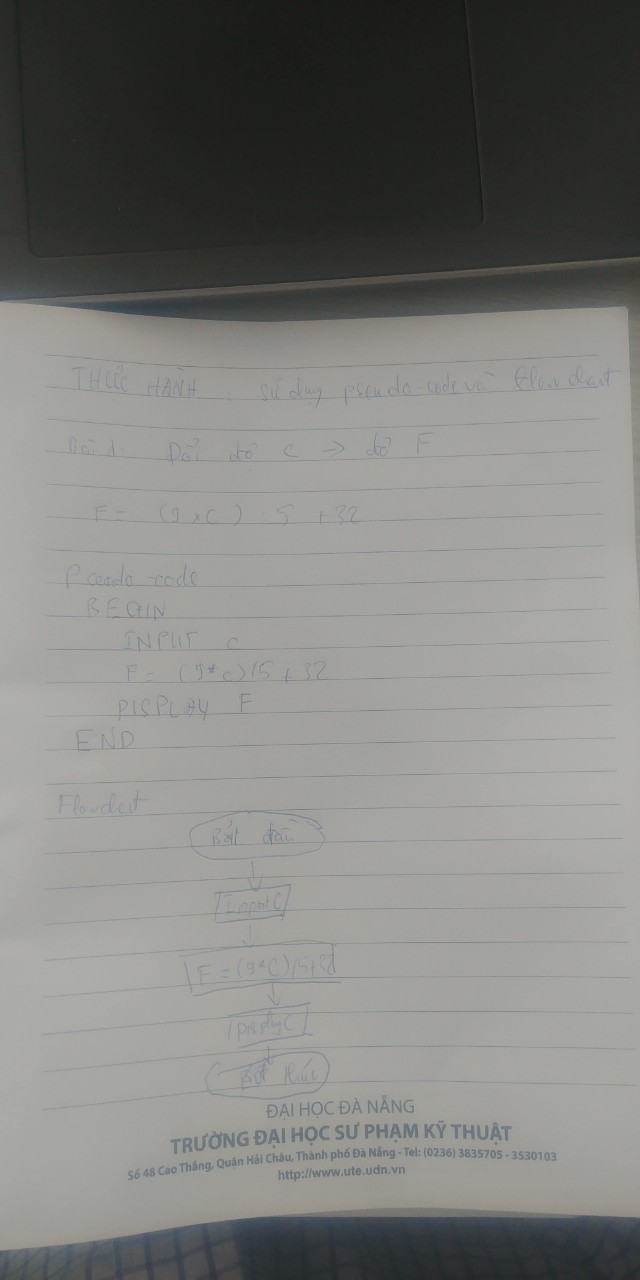 THỰC HÀNH : sử dụng pseudo-code và flowchart
Bài 1. Đổi độ C → độ F
F = (9 x C) 5 + 32
Pseudo-code
BEGIN
INPUT C
F = (9*C)/5 + 32
DISPLAY F
END
Flowchart
Bắt đầu
Input C
F = (9*C)/5+32
Display C
ĐẠI HỌC ĐÀ NẴNG
TRƯỜNG ĐẠI HỌC SƯ PHẠM KỸ THUẬT
Số 48 Cao Thắng, Quận Hải Châu, Thành phố Đà Nẵng - Tel: (0236) 3835705 - 3530103
http://www.ute.udn.vn